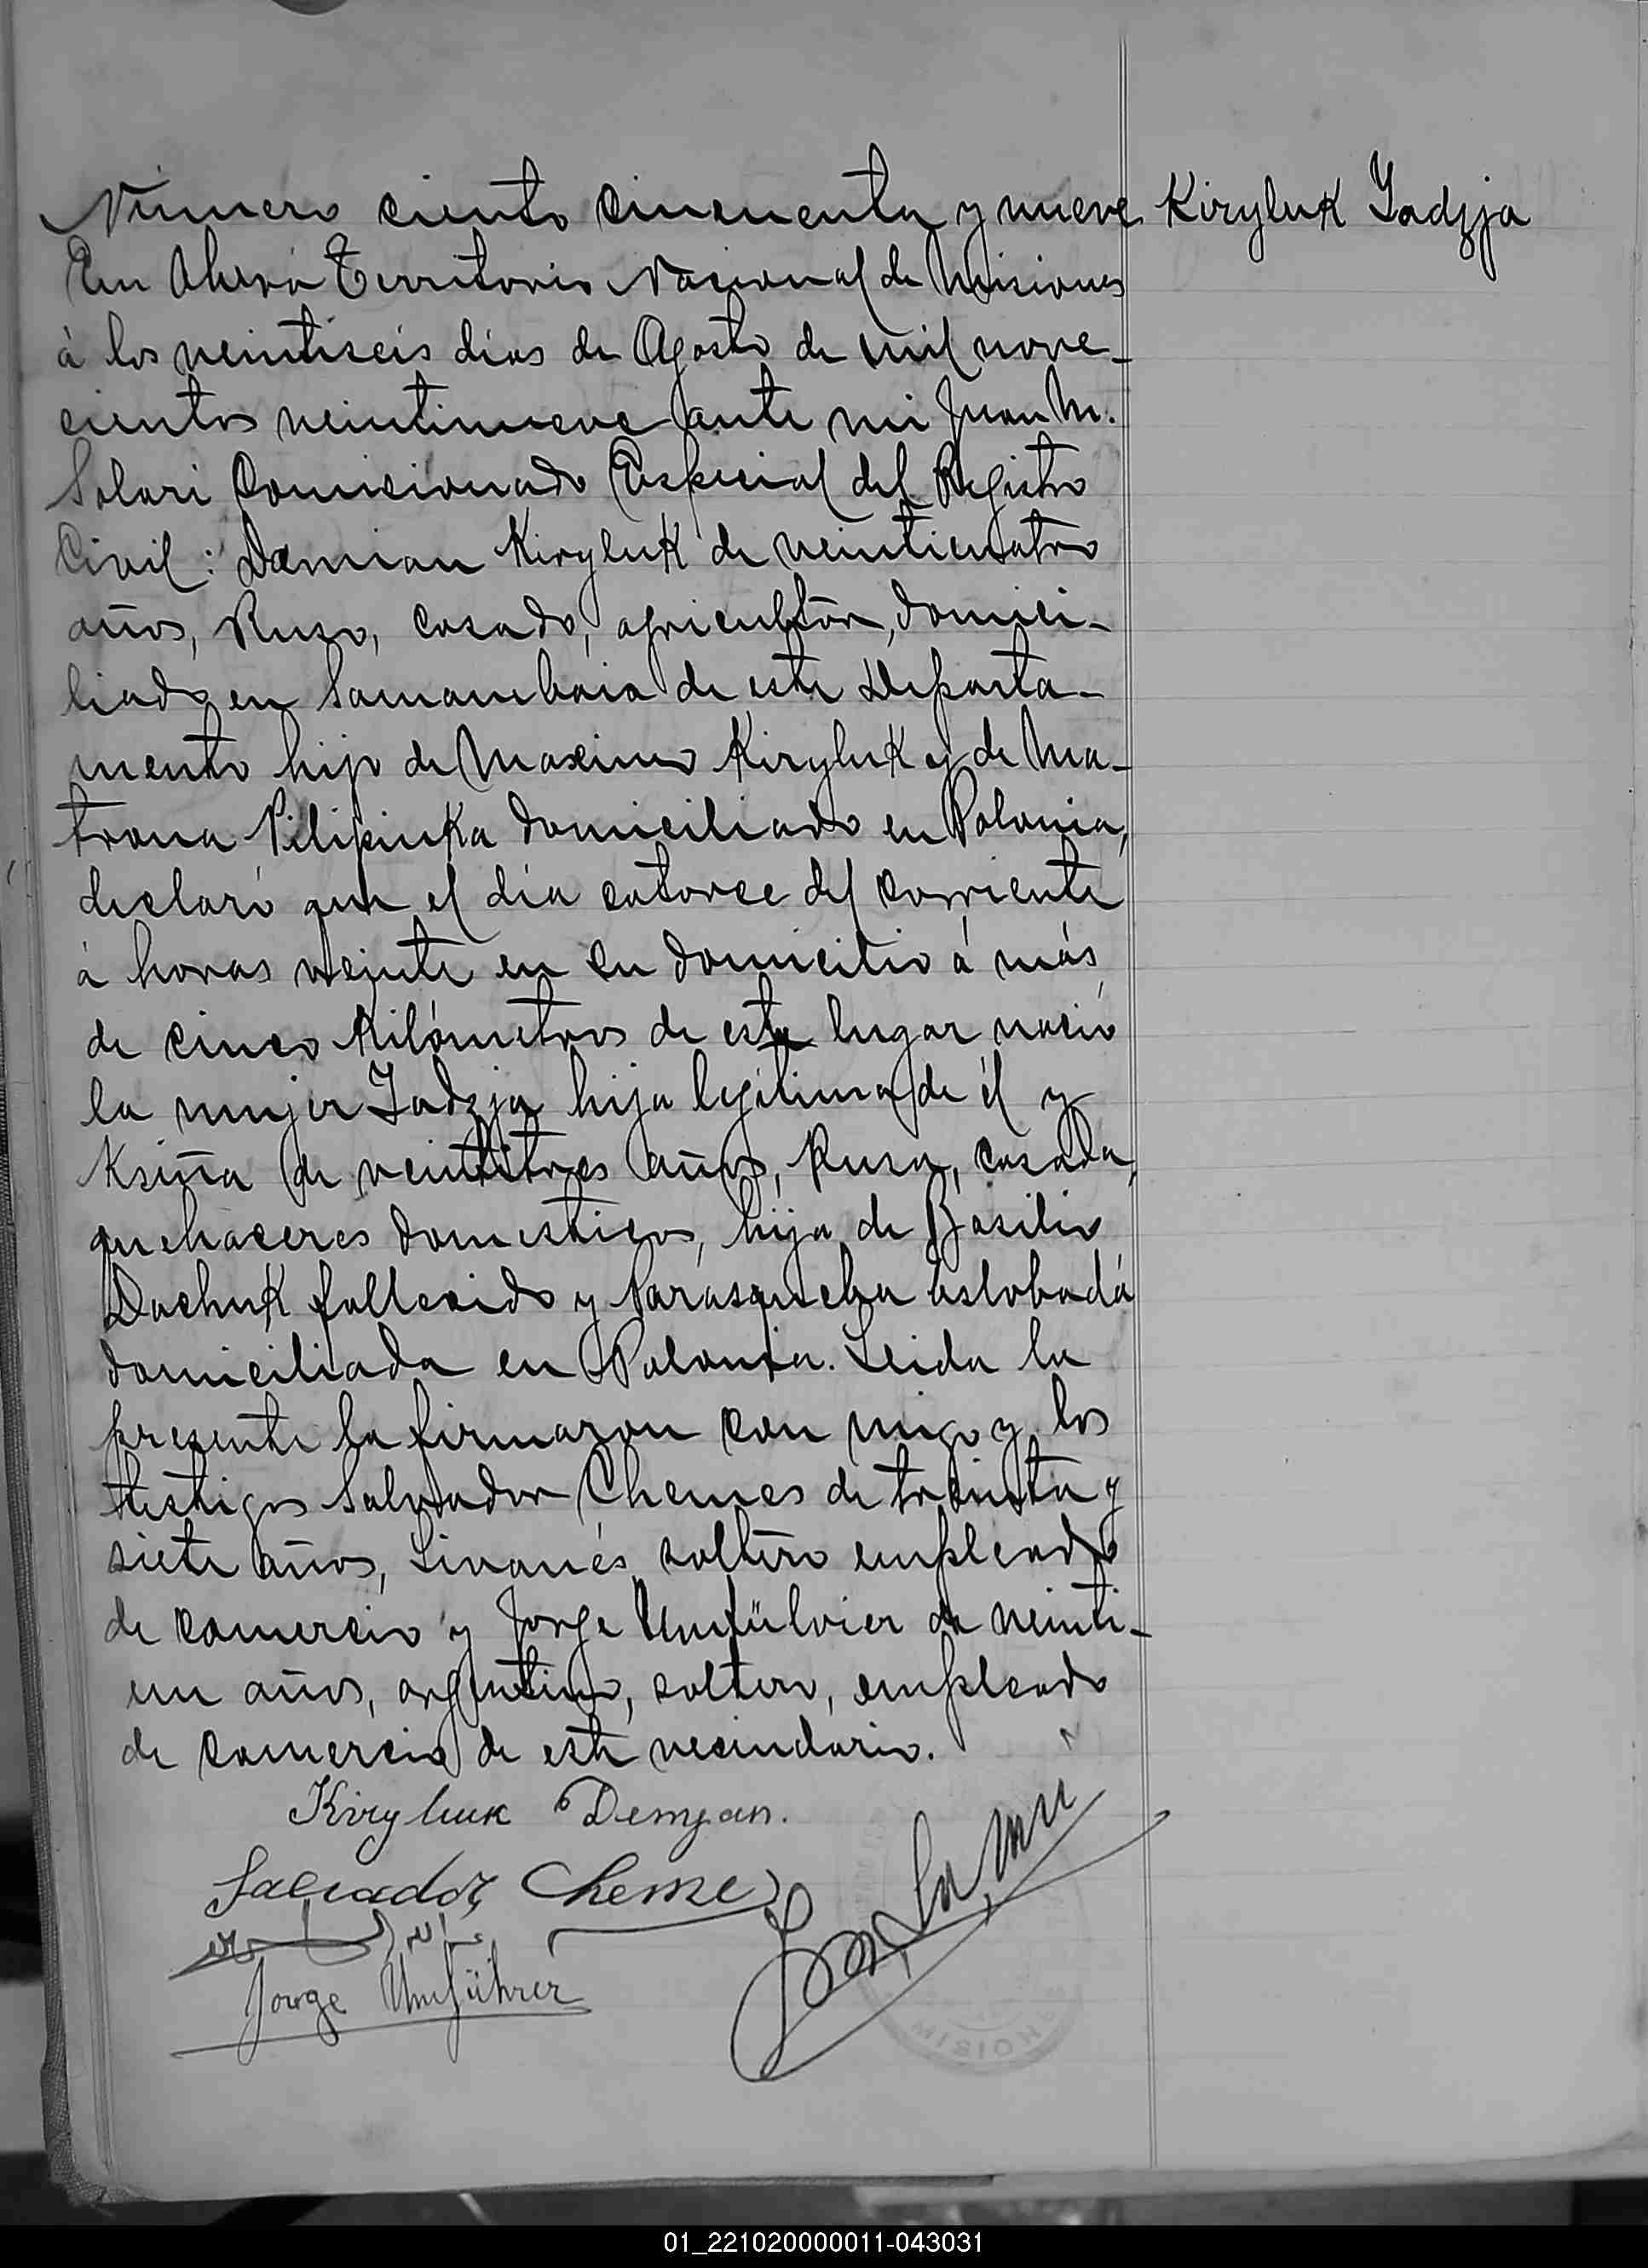 Número ciento cincuenta y nueve
Kiryluk Jadzja
En Oberá Territorio Nacional de Misiones
á los veintiseis dias de Agosto de mil nove-
cientos veintinueve ante mi Juan M.
Solari Comicionado Especial del Registro
Civil: Demian Kiryluk de veinticuatro
años, Ruso, casado, agricultor, domici-
liado en Samambaia de este Departa-
mento hijo de Maximo Kiryluk y de Ma-
trona Pilipiuka domiciliado en Polonia,
declaró que el dia catorce del corriente
á horas veinte en su domicilio á más
de cinco Kilómetros de este lugar nació
la mujer Jadzja hija legítima de él y
Ksiña de veintitres años, Rusa, casada,
quehaceres domesticos, hija de Basilio
Dachuk fallecido y Parasqueba Aslobadá
domiciliada en Polonia. Leida la
presente la firmaron con migo y los
testigos Salvador Chemes de treinta y
siete años, Livanés, soltero empleado
de comercio y Jorge Umfülvier de veinti-
un años, argentino, soltero, empleado
de comercio de este vecindario.
Kiryluk Demjan.
Salvador Cheme
Jorge Umführer
01_221020000011-043031